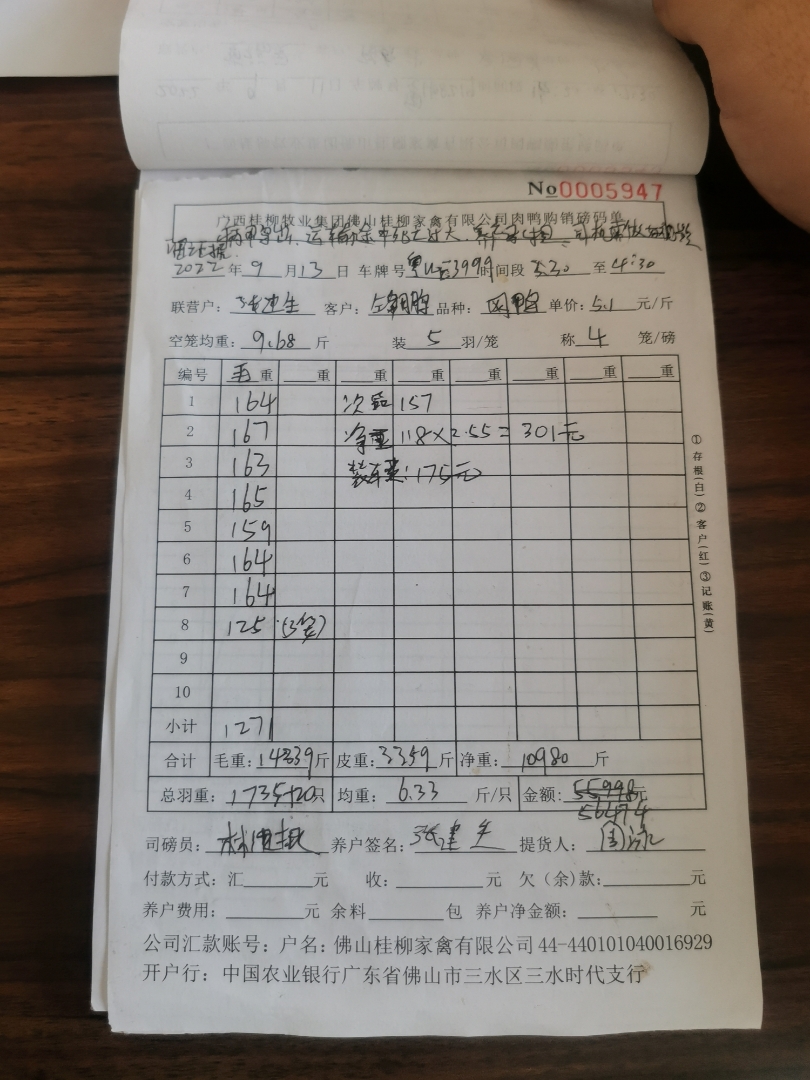 No0005947
广西桂柳牧业集团佛山桂柳家禽有限公司肉鸭购销磅码单
2022年9月13日 车牌号 3999时间段 3:30 至4:30
联营户: 客户: 品种: 肉鸭 单价: 5.1 元/斤
空笼均重: 9.68 斤 装 5 羽/笼 称 4 笼/磅
编号 毛重 重 重 重 重 重 重 重
1 164 次品 157
2 167 净重 118×2.55=301元
3 163 装车费: 175元
4 165
5 159
6 164
7 164
8 125 (3笼)
9
10
小计 1271
合计 毛重: 14339斤 皮重: 3359斤 净重: 10980 斤
总羽重: 1735+20只 均重: 6.33 斤/只 金额: 55998元
56474
司磅员: 养户签名: 提货人:
付款方式: 汇 元 收: 元 欠(余)款: 元
养户费用: 元 余料 包 养户净金额: 元
公司汇款账号: 户名: 佛山桂柳家禽有限公司 44-440101040016929
开户行: 中国农业银行广东省佛山市三水区三水时代支行
①存根(白)②客户(红)③记账(黄)